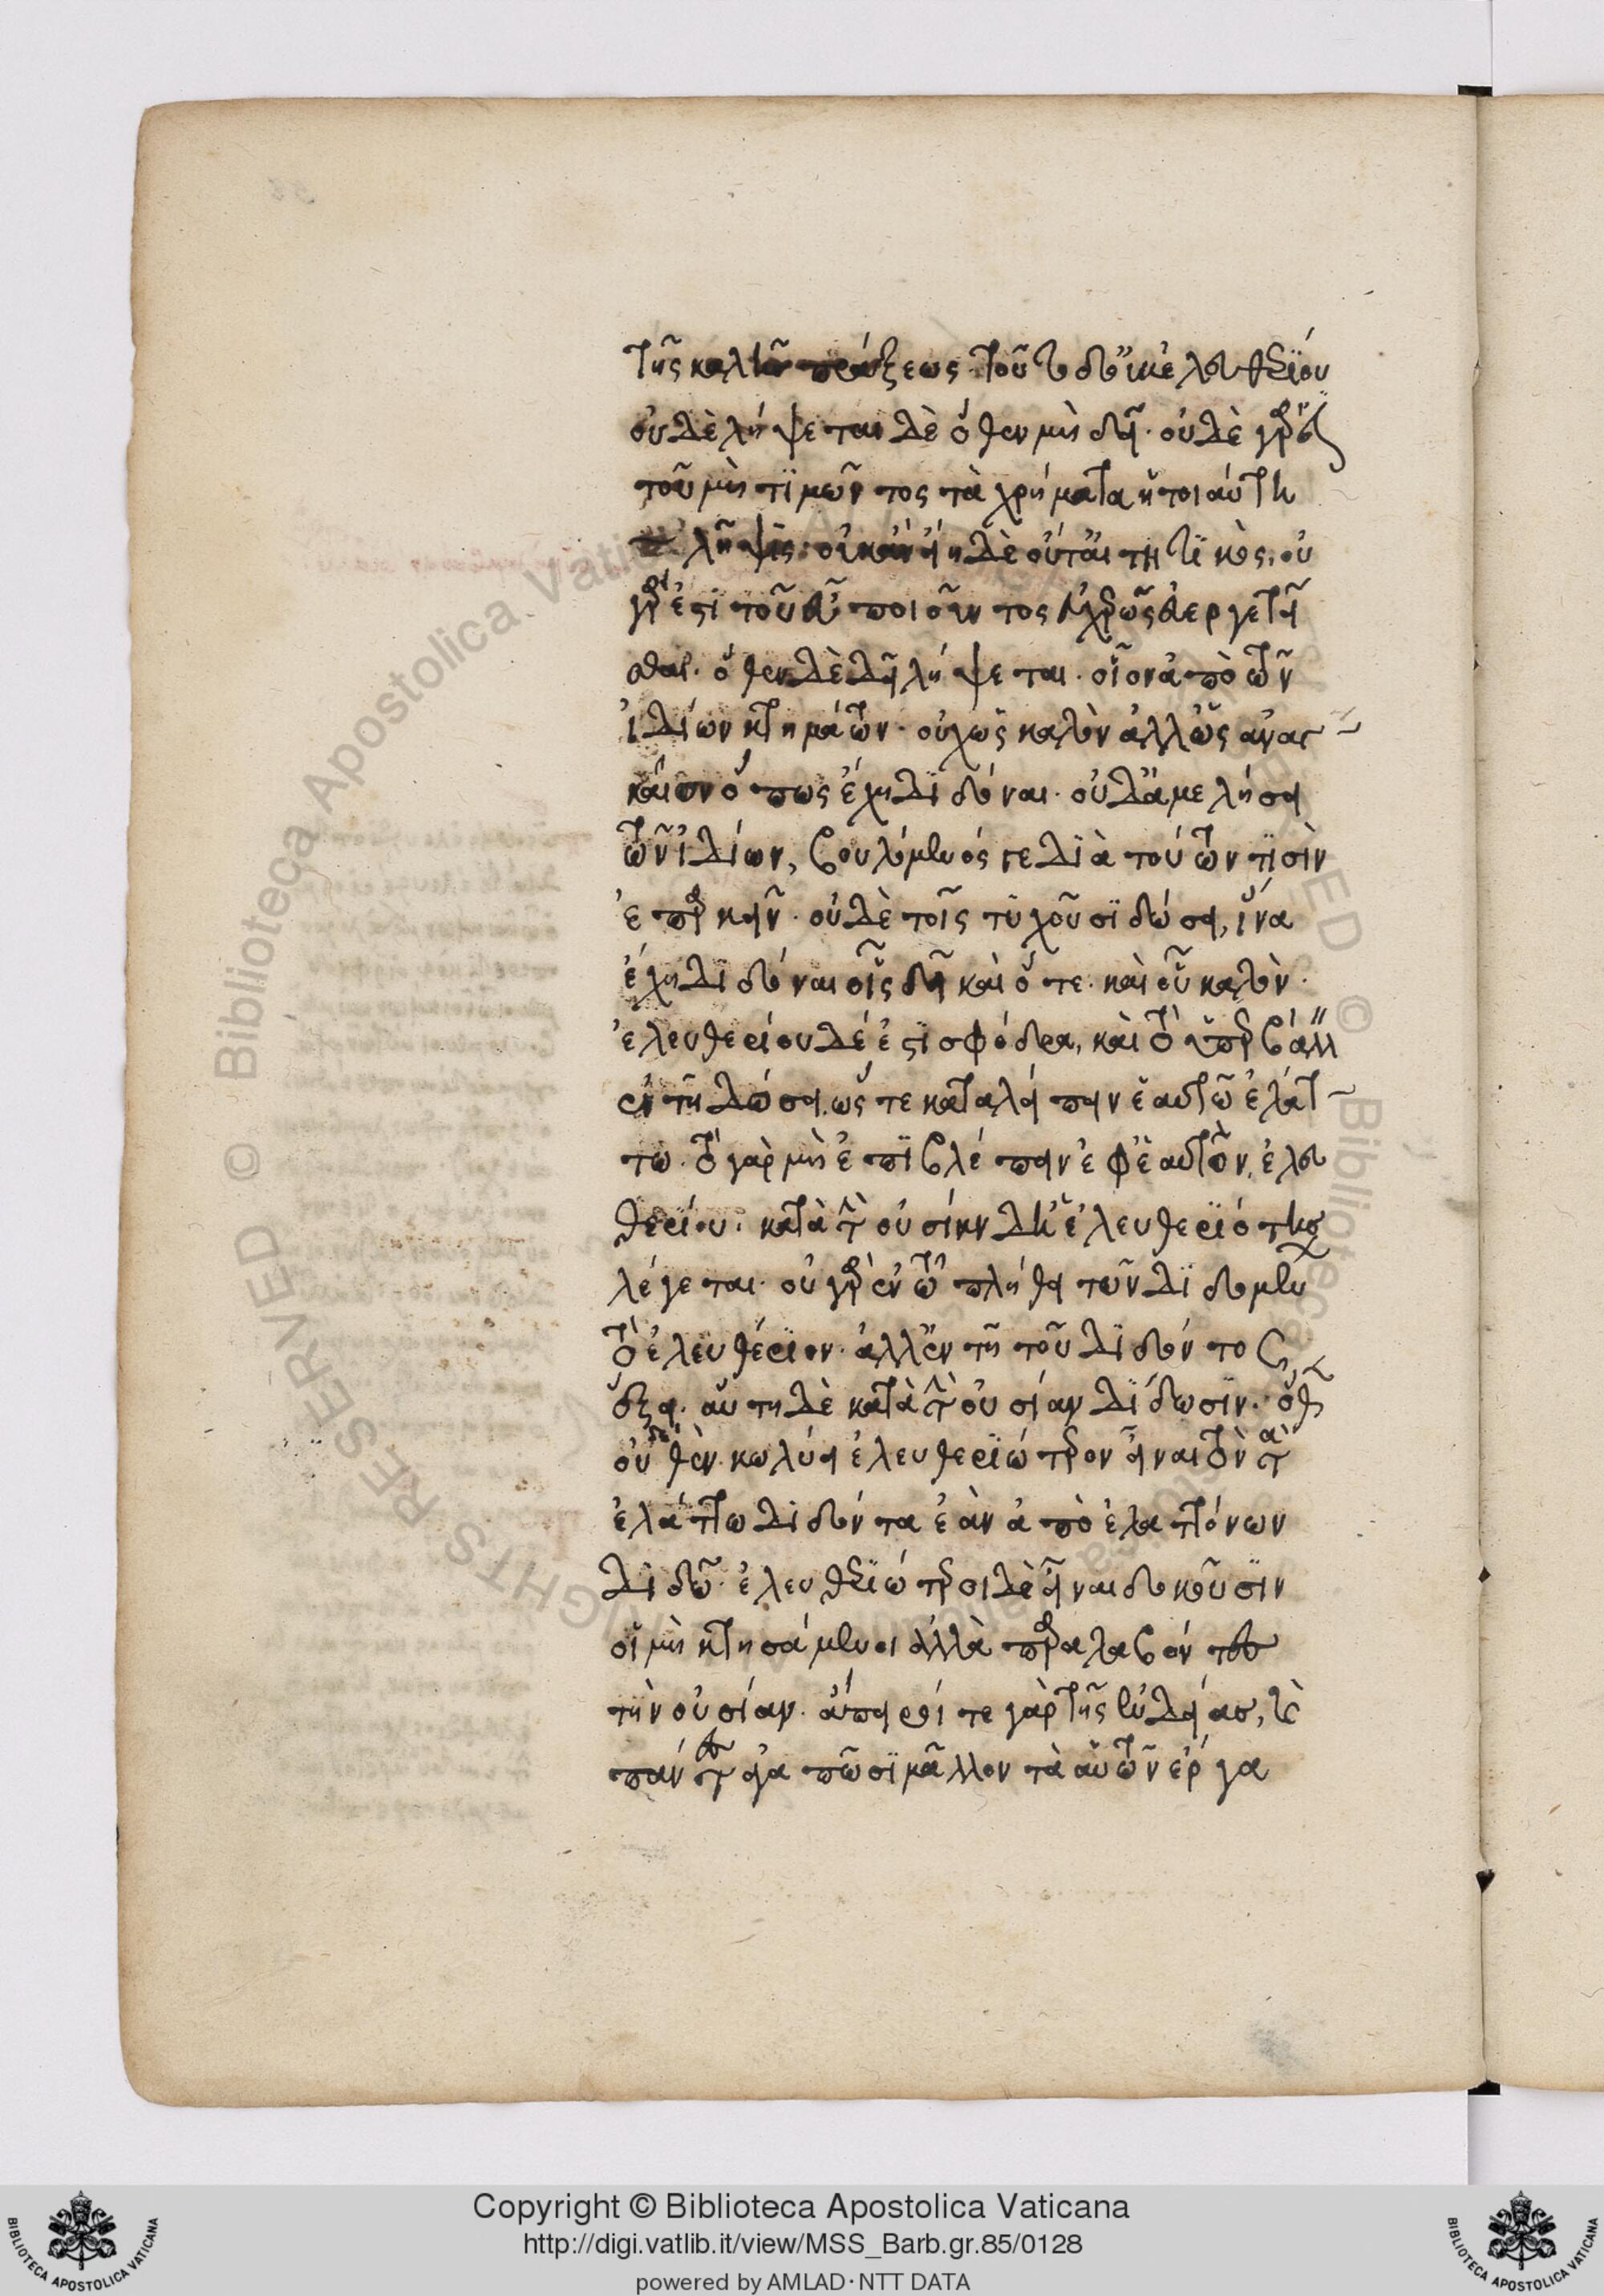 τῆς καλῆς πράξεως. τοῦτο δ' οὐκ ἐλευθερίου
οὐδὲ λήψεται δὲ ὅθεν μὴ δεῖ. οὐδὲ γάρ ἐστι
τοῦ μὴ τιμῶντος τὰ χρήματα ἡ τοιαύτη
λῆψις. οὐκ ἂν εἴη δὲ οὐδ' αἰτητικός. οὐ
γάρ ἐστι τοῦ εὖ ποιοῦντος εὐχερῶς εὐεργετεῖ
σθαι. ὅθεν δὲ δεῖ λήψεται. οἷον ἀπὸ τῶν
ἰδίων κτημάτων. οὐχ ὡς καλὸν ἀλλ' ὡς αναγ
καῖον ὅπως ἔχῃ διδόναι. οὐδ' ἀμελήσει
τῶν ἰδίων, βουλόμενός γε διὰ τούτων τισὶν
ἐπαρκεῖν. οὐδὲ τοῖς τυχοῦσι δώσει, ἵνα
ἔχῃ διδόναι οἷς δεῖ καὶ ὅτε. καὶ οὗ καλόν.
ἐλευθερίου δέ ἐστι σφόδρα, καὶ τὸ ὑπερβάλλ
ειν τῇ δόσει. ὥστε καταλείπειν ἑαυτῷ ἐλάτ
τω. τὸ γὰρ μὴ ἐπιβλέπειν ἐφ' ἑαυτὸν, ἐλευ
θερίου. κατὰ τὴν οὐσίαν δ' ἡ ἐλευθεριότης
λέγεται. οὐ γὰρ ἐν τῷ πλήθει τῶν διδομένων
τὸ ἐλευθέριον. ἀλλ' ἐν τῇ τοῦ διδόντος
ἕξει. αὕτη δὲ κατὰ τὴν οὐσίαν δίδωσιν.
οὐθὲν δὲ κωλύει ἐλευθεριώτερον εἶναι τὸν τὰ
ἐλάττω διδόντα ἐὰν ἀπὸ ἐλαττόνων
διδῷ. ἐλευθεριώτεροι δὲ εἶναι δοκοῦσιν
οἱ μὴ κτησάμενοι ἀλλὰ παραλαβόντες
τὴν οὐσίαν. ἄπειροί τε γὰρ τῆς ἐνδείας, καὶ
πάντες ἀγαπῶσι μᾶλλον τὰ αὑτῶν ἔργα
Copyright © Biblioteca Apostolica Vaticana
http://digi.vatlib.it/view/MSS_Barb.gr.85/0128
powered by AMLAD·NTT DATA